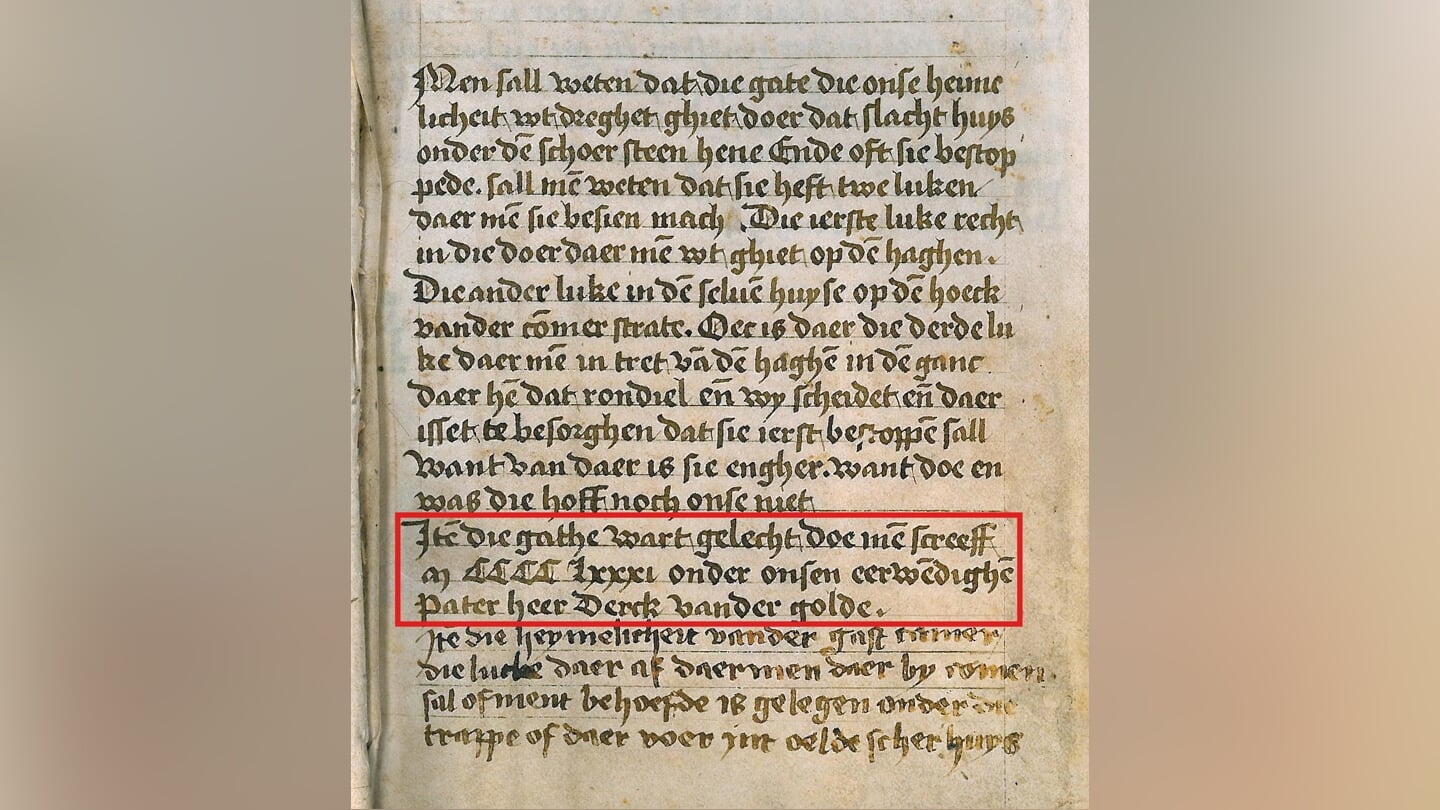 Men sall weten dat die gate die onse heime
licheit wt dreghet ghiet doer dat slacht huys
onder dē schoer steen hene Ende oft sie bestop
pede. sall mē weten dat sie heft twe luken
daer mē sie besien mach. Die ierste luke recht
in die doer daer mē wt ghiet op dē haghen.
Die ander luke in dē seluē huyse op dē hoeck
vander cōmer strate. Oec is daer die derde lu
ke daer mē in tret vā dē haghē in dē ganc
daer hē dat rondiel eñ wy scheidet eñ daer
isset te besorghen dat sie ierst bestoppē sall
want van daer is sie engher. want doe en
was die hoff noch onse niet
Itē die gathe wart gelecht doe mē screeff
m CCCC Lxxxi onder onsen eerwēdighē
Pater heer Derck vander golde.
Itē die heymelicheit vander gast camer
die lucke daer af daermen daer by comen
sal of ment behoefde is gelegen onder die
trappe of daer voer int oelde scher huys